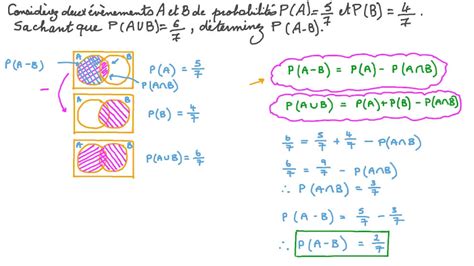 Considérez deux évènements A et B de probabilités P(A)= 5/7 et P(B) = 4/7 .
Sachant que P(A∪B)= 6/7 , déterminez P(A-B).
P(A-B)
A B
P(A) = 5/7
P(A∩B)
A B
P(B) = 4/7
A B
P(A∪B) = 6/7
P(A-B) = P(A) - P(A∩B)
P(A∪B) = P(A)+P(B) - P(A∩B)
6/7 = 5/7 + 4/7 - P(A∩B)
6/7 = 9/7 - P(A∩B)
∴ P(A∩B) = 3/7
P(A-B) = 5/7 - 3/7
∴ P(A-B) = 2/7